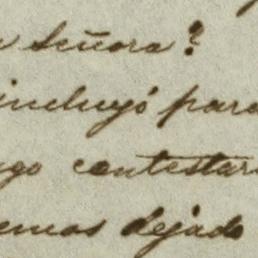 a Señora?
incluyó para
go contestar
emos dejado